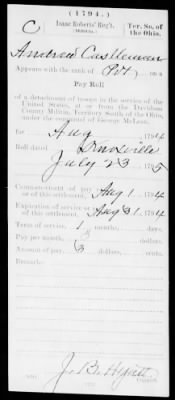 (1794.)
C
Isaac Roberts' Reg't.
Ter. So. of
the Ohio.
Andrew Castleman
Appears with the rank of Pvt on a
Pay Roll
of a detachment of troops in the service of the
United States, of or from the Davidson
County Militia, Territory South of the Ohio,
under the command of George McLean,
for Aug 1794
Roll dated Knoxville
July 23 1795
Commencement of pay
or of this settlement, Aug 1 1794
Expiration of service or
of this settlement, Aug 31 1794
Term of service 1 months, days.
Pay per month, 3 dollars.
Amount of pay, 3 dollars, cents.
Remarks:
Copyist.